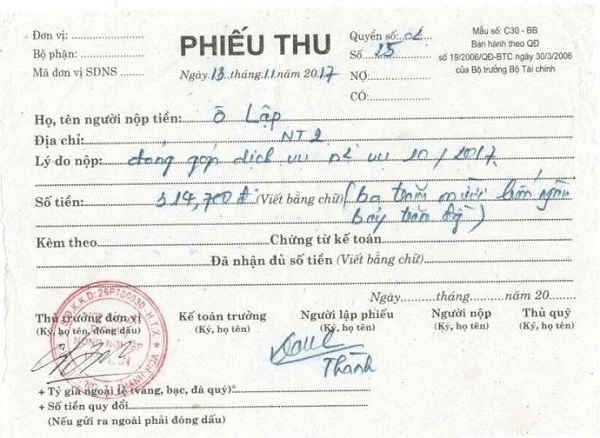 Đơn vị:
Bộ phận:
Mã đơn vị SDNS
PHIẾU THU
Ngày 13 tháng 11 năm 2017
Quyển số: 02
Số 25
NỢ:
CÓ:
Mẫu số: C30 - BB
Ban hành theo QĐ
số 19/2006/QĐ-BTC ngày 30/3/2006
của Bộ trưởng Bộ Tài chính
Họ, tên người nộp tiền: Ô Lập
Địa chỉ: NT2
Lý do nộp: đóng góp dịch vụ vụ 10/2017
Số tiền: 314,700đ (Viết bằng chữ) (ba trăm mười bốn ngàn
bảy trăm đồng)
Kèm theo Chứng từ kế toán
Đã nhận đủ số tiền (Viết bằng chữ)
Ngày tháng năm 20
Thủ trưởng đơn vị
(Ký, họ tên, đóng dấu)
Kế toán trưởng
(Ký, họ tên)
Người lập phiếu
(Ký, họ tên)
Người nộp
(Ký, họ tên)
Thủ quỹ
(Ký, họ tên)
Thành
+ Tỷ giá ngoại tệ (vàng, bạc, đá quý)
+ Số tiền quy đổi
(Nếu gửi ra ngoài phải đóng dấu)